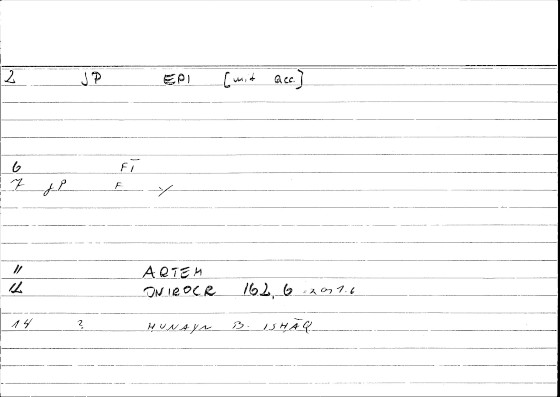 2 JP EPI [mit acc.]
6 FĪ
7 JP F
11 ARTEM
12 ONIROCR 162, 6
14 ? HUNAYN B. ISHĀQ